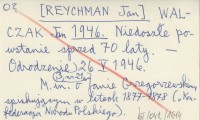 02
[REYCHMAN Jan] WAL-
CZAK Jan 1946. Niedoszłe po-
wstanie sprzed 70 laty. —
Odrodzenie 26 V 1946.
M. in. o Janie Grzegorzewskim
spiskującym w latach 1877-1878 (
federacja Narodu Polskiego).